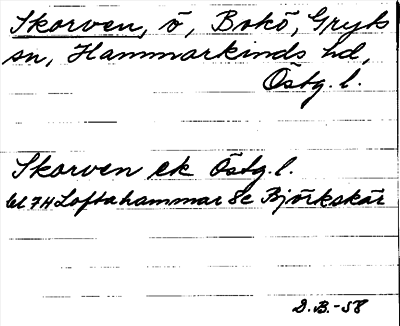 Skorven, ö, Bokö, Gryts
sn, Hammarkinds hd,
Östg. l.
Skorven ek Östg. l.
bl 7H Loftahammar 8e Björkskär
D.B.-58